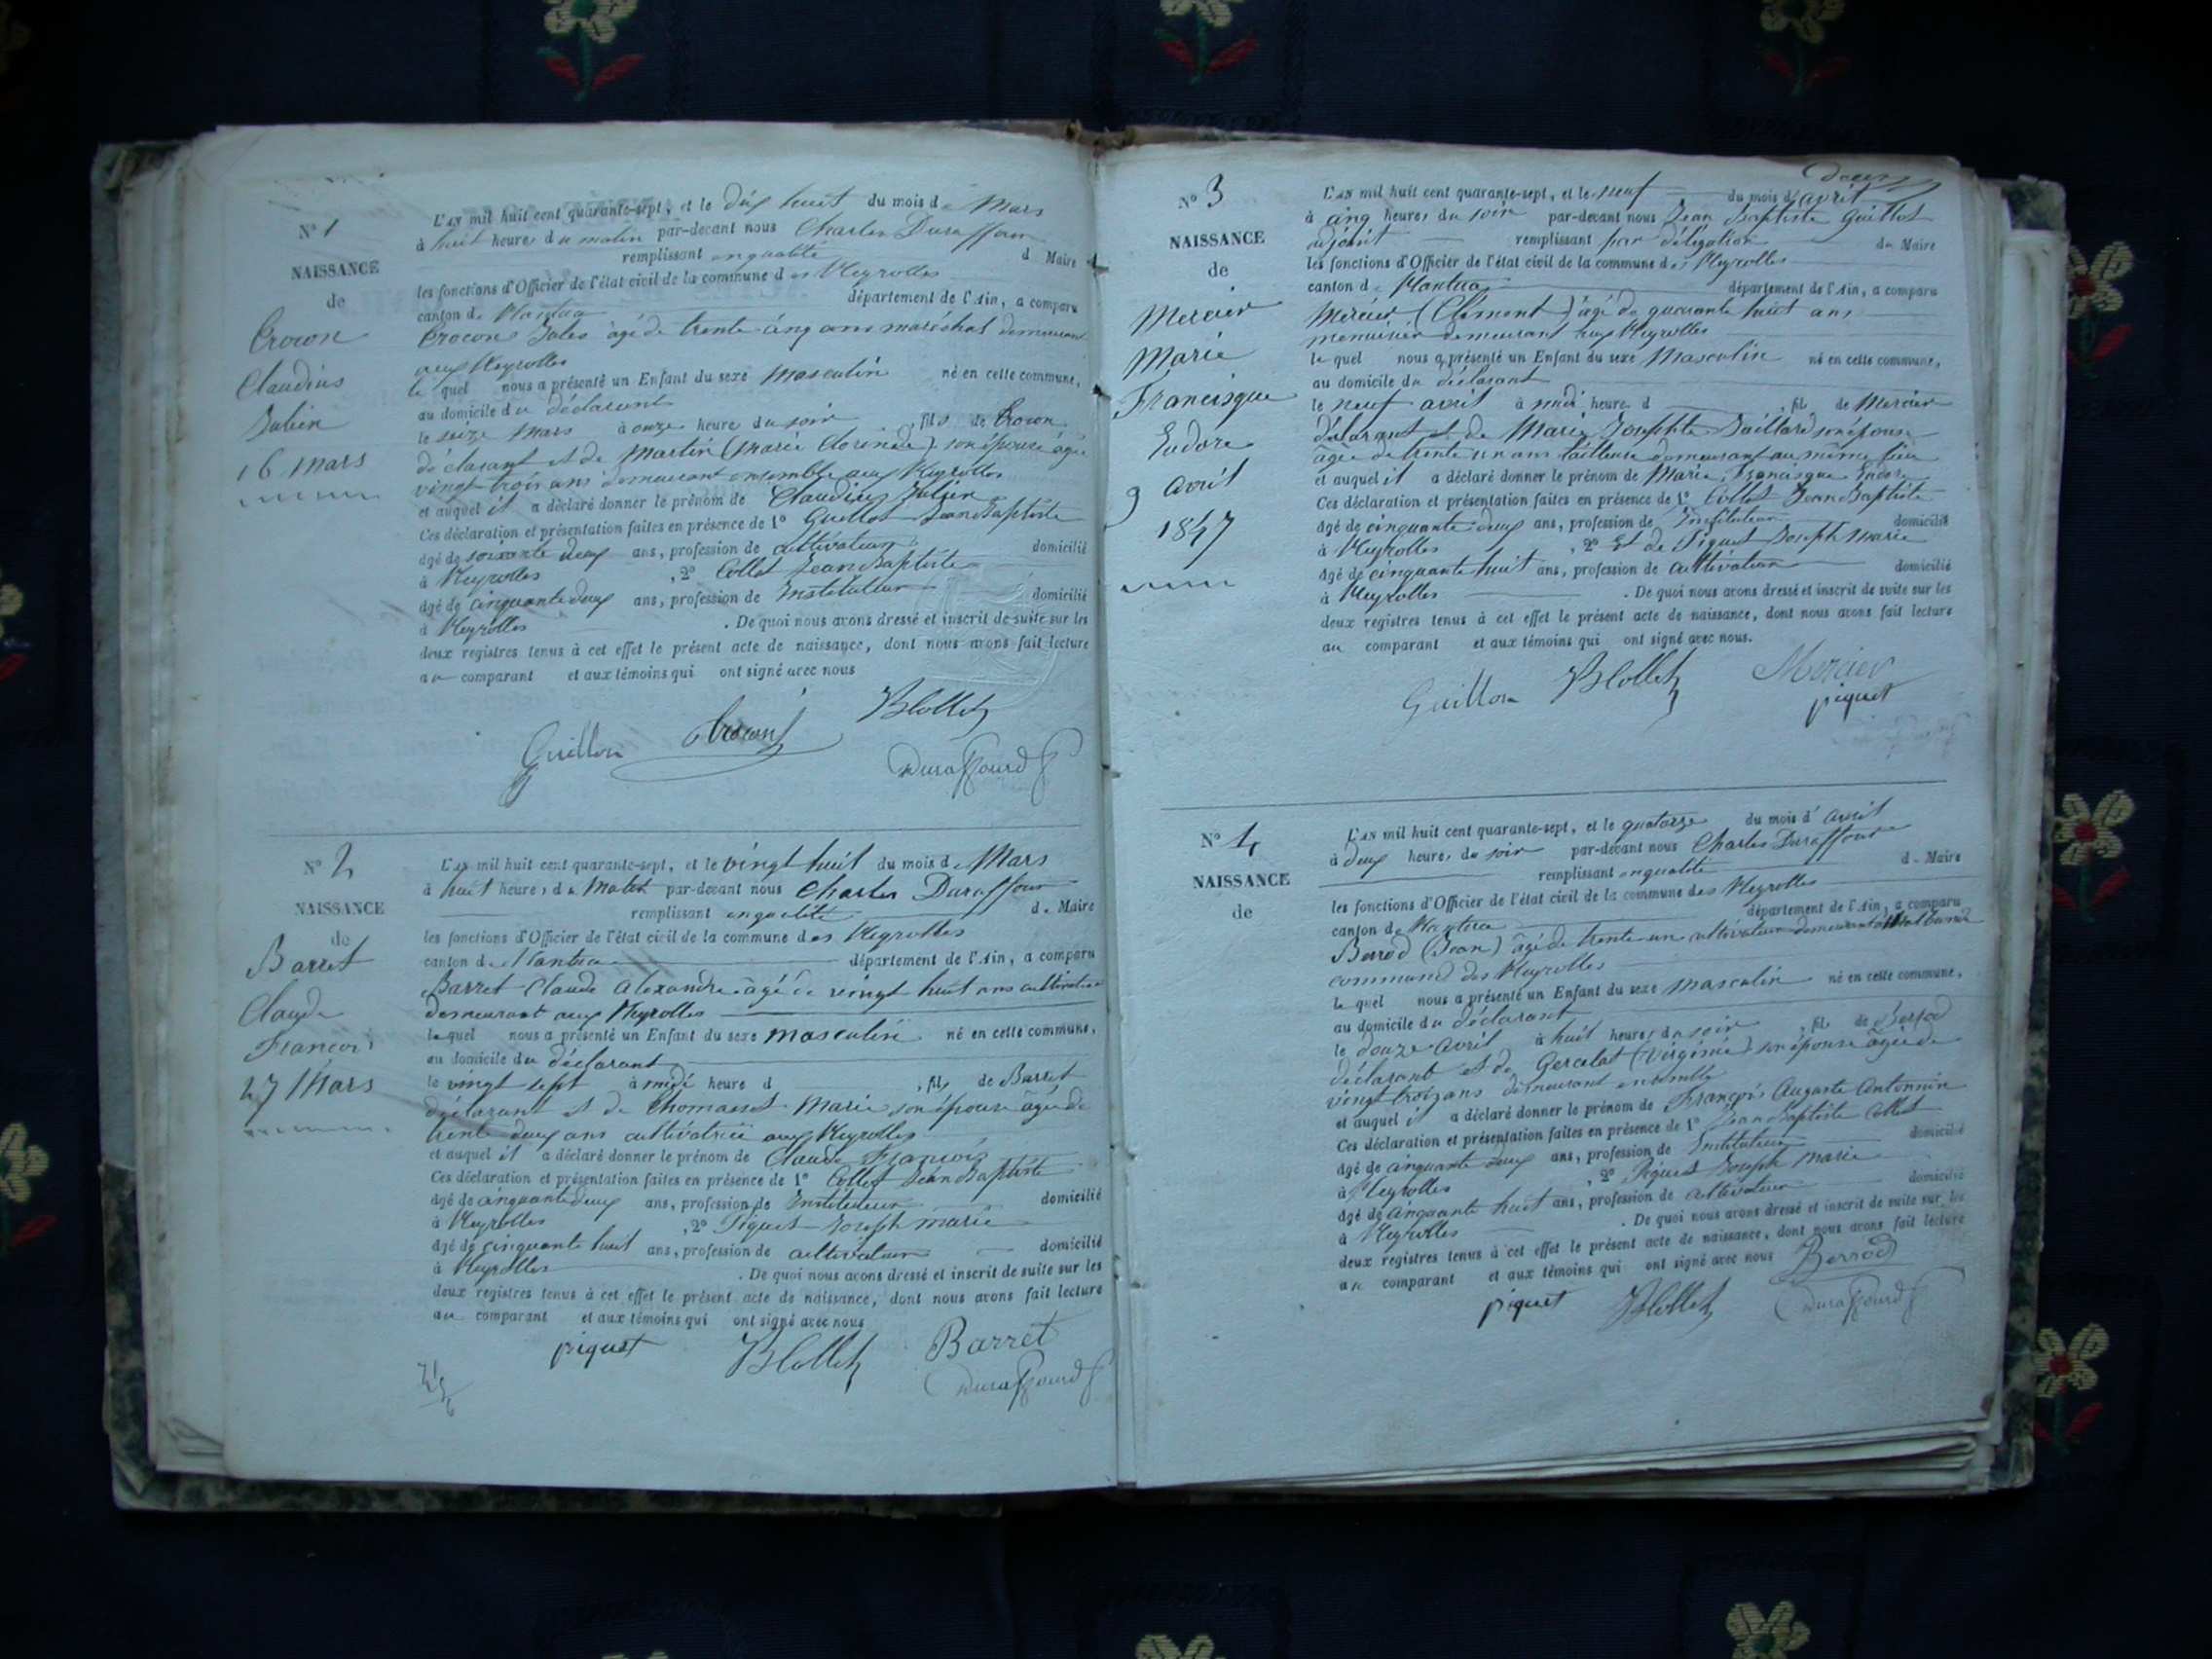 N° 1
NAISSANCE
de
Crocon
Claudius
Julien
16 mars
L'AN mil huit cent quarante-sept, et le dix huit du mois de Mars
à huit heures du matin par-devant nous Charles Duraffour
remplissant en qualité de Maire
les fonctions d'Officier de l'état civil de la commune des Neyrolles
canton de Nantua département de l'Ain, a comparu
Crocon Jules âgé de trente cinq ans maréchal demeurant
aux Neyrolles
lequel nous a présenté un Enfant du sexe masculin né en cette commune,
au domicile du déclarant
le seize Mars à onze heure du soir, fils de Crocon
déclarant et de Martin (Marie Clorinde) son épouse âgée
vingt trois ans demeurant ensemble aux Neyrolles
et auquel il a déclaré donner le prénom de Claudius Julien
Ces déclaration et présentation faites en présence de 1° Guillot Jean Baptiste
âgé de soixante deux ans, profession de cultivateur domicilié
à Neyrolles, 2° Collet Jean Baptiste
âgé de cinquante deux ans, profession de Instituteur domicilié
à Neyrolles. De quoi nous avons dressé et inscrit de suite sur les
deux registres tenus à cet effet le présent acte de naissance, dont nous avons fait lecture
au comparant et aux témoins qui ont signé avec nous
Guillot Crocon JBCollet
Duraffourd
N° 2
NAISSANCE
de
Barret
Claude
François
27 Mars
L'AN mil huit cent quarante-sept, et le vingt huit du mois de Mars
à huit heures du matin par-devant nous Charles Duraffour
remplissant en qualité de Maire
les fonctions d'Officier de l'état civil de la commune des Neyrolles
canton de Nantua département de l'Ain, a comparu
Barret Claude Alexandre âgé de vingt huit ans cultivateur
demeurant aux Neyrolles
lequel nous a présenté un Enfant du sexe masculin né en cette commune,
au domicile du déclarant
le vingt sept à midi heure d, fils de Barret
déclarant et de Thomasset Marie son épouse âgée de
trente deux ans cultivatrice aux Neyrolles
et auquel il a déclaré donner le prénom de Claude François
Ces déclaration et présentation faites en présence de 1° Collet Jean Baptiste
âgé de cinquante deux ans, profession de Instituteur domicilié
à Neyrolles, 2° Piquet Joseph Marie
âgé de cinquante huit ans, profession de cultivateur domicilié
à Neyrolles. De quoi nous avons dressé et inscrit de suite sur les
deux registres tenus à cet effet le présent acte de naissance, dont nous avons fait lecture
au comparant et aux témoins qui ont signé avec nous
piquet JBCollet Barret
Duraffourd
deux
N° 3
NAISSANCE
de
Mercier
Marie
Francisque
Eudore
9 avril
1847
L'AN mil huit cent quarante-sept, et le neuf du mois d'avril
à cinq heures du soir par-devant nous Jean Baptiste Guillot
adjoint remplissant par délégation du Maire
les fonctions d'Officier de l'état civil de la commune des Neyrolles
canton de Nantua département de l'Ain, a comparu
Mercier (Clément) âgé de quarante huit ans
menuisier demeurant aux Neyrolles
lequel nous a présenté un Enfant du sexe Masculin né en cette commune,
au domicile du déclarant
le neuf avril à midi heure d, fils de Mercier
déclarant et de Marie Josephte Baillard son épouse
âgée de trente un ans tailleuse demeurant au même lieu
et auquel il a déclaré donner le prénom de Marie, Francisque Eudore
Ces déclaration et présentation faites en présence de 1° Collet Jean Baptiste
âgé de cinquante deux ans, profession de Instituteur domicilié
à Neyrolles, 2° Et de Piquet Joseph Marie
âgé de cinquante huit ans, profession de cultivateur domicilié
à Neyrolles. De quoi nous avons dressé et inscrit de suite sur les
deux registres tenus à cet effet le présent acte de naissance, dont nous avons fait lecture
au comparant et aux témoins qui ont signé avec nous.
Guillot JBCollet Mercier
piquet
N° 4
NAISSANCE
de
L'AN mil huit cent quarante-sept, et le quatorze du mois d'avril
à deux heures du soir par-devant nous Charles Duraffour
remplissant en qualité de Maire
les fonctions d'Officier de l'état civil de la commune des Neyrolles
canton de Nantua département de l'Ain, a comparu
Berrod (Jean) âgé de trente un cultivateur demeurant
commune des Neyrolles
lequel nous a présenté un Enfant du sexe masculin né en cette commune,
au domicile du déclarant
le douze avril à huit heures du soir, fils de Berrod
déclarant et de Gercelat (Virginie) son épouse âgée de
vingt trois ans demeurant ensemble
et auquel il a déclaré donner le prénom de François Auguste Antonnin
Ces déclaration et présentation faites en présence de 1° Jean Baptiste Collet
âgé de cinquante deux ans, profession de Instituteur domicilié
à Neyrolles, 2° Piquet Joseph Marie
âgé de cinquante huit ans, profession de cultivateur domicilié
à Neyrolles. De quoi nous avons dressé et inscrit de suite sur les
deux registres tenus à cet effet le présent acte de naissance, dont nous avons fait lecture
au comparant et aux témoins qui ont signé avec nous Berrod
piquet JBCollet Duraffourd